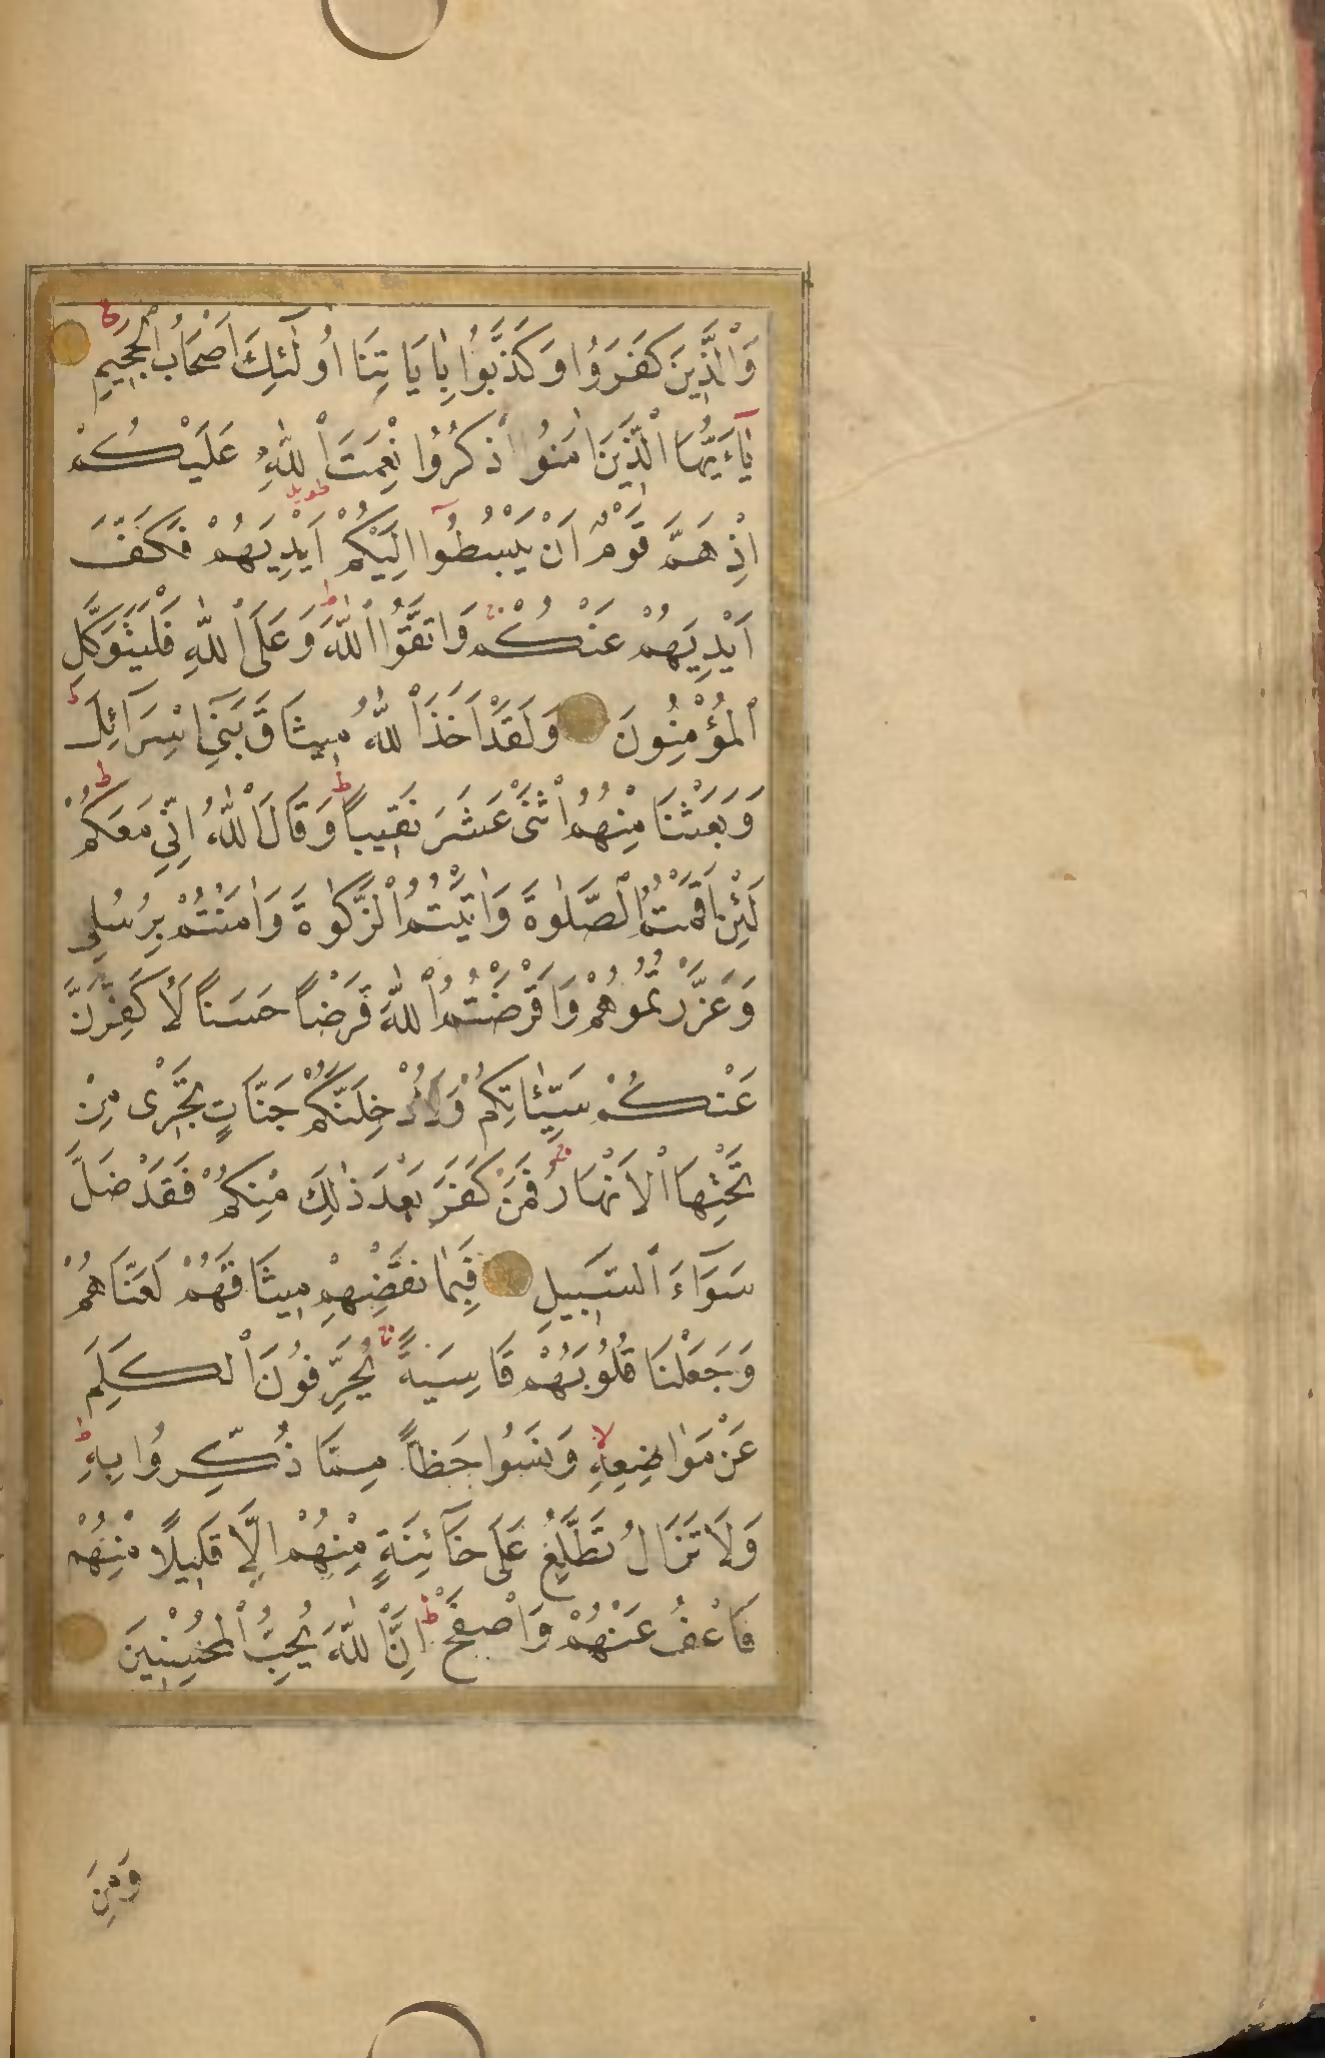 وَالَّذِينَ كَفَرُوا وَكَذَّبُوا بِاٰيَاتِنَا اُولٰٓئِكَ اَصْحَابُ الْجَحِيمِ
يَٓاءَيُّهَا الَّذِينَ اٰمَنُوا اذْكُرُوا نِعْمَتَ اللّٰهِ عَلَيْكُمْ
اِذْ هَمَّ قَوْمٌ اَنْ يَبْسُطُٓوا اِلَيْكُمْ اَيْدِيَهُمْ فَكَفَّ
اَيْدِيَهُمْ عَنْكُمْ وَاتَّقُوا اللّٰهَ وَعَلَى اللّٰهِ فَلْيَتَوَكَّلِ
الْمُؤْمِنُونَ وَلَقَدْ اَخَذَ اللّٰهُ مِيثَاقَ بَنِٓي اِسْرَٓائِلَ
وَبَعَثْنَا مِنْهُمُ اثْنَىْ عَشَرَ نَقِيبًا وَقَالَ اللّٰهُ اِنِّي مَعَكُمْ
لَئِنْ اَقَمْتُمُ الصَّلٰوةَ وَاٰتَيْتُمُ الزَّكٰوةَ وَاٰمَنْتُمْ بِرُسُلِي
وَعَزَّرْتُمُوهُمْ وَاَقْرَضْتُمُ اللّٰهَ قَرْضًا حَسَنًا لَاُكَفِّرَنَّ
عَنْكُمْ سَيِّئٰاتِكُمْ وَلَاُدْخِلَنَّكُمْ جَنَّاتٍ تَجْرِى مِنْ
تَحْتِهَا الْاَنْهَارُ فَمَنْ كَفَرَ بَعْدَ ذٰلِكَ مِنْكُمْ فَقَدْ ضَلَّ
سَوَٓاءَ السَّبِيلِ فَبِمَا نَقْضِهِمْ مِيثَاقَهُمْ لَعَنَّاهُمْ
وَجَعَلْنَا قُلُوبَهُمْ قَاسِيَةً يُحَرِّفُونَ الْكَلِمَ
عَنْ مَوَاضِعِهِ وَنَسُوا حَظًّا مِمَّا ذُكِّرُوا بِهِ
وَلَا تَزَالُ تَطَّلِعُ عَلَى خَٓائِنَةٍ مِنْهُمْ اِلَّا قَلِيلًا مِنْهُمْ
فَاعْفُ عَنْهُمْ وَاصْفَحْ اِنَّ اللّٰهَ يُحِبُّ الْمُحْسِنِينَ
وَمِنَ